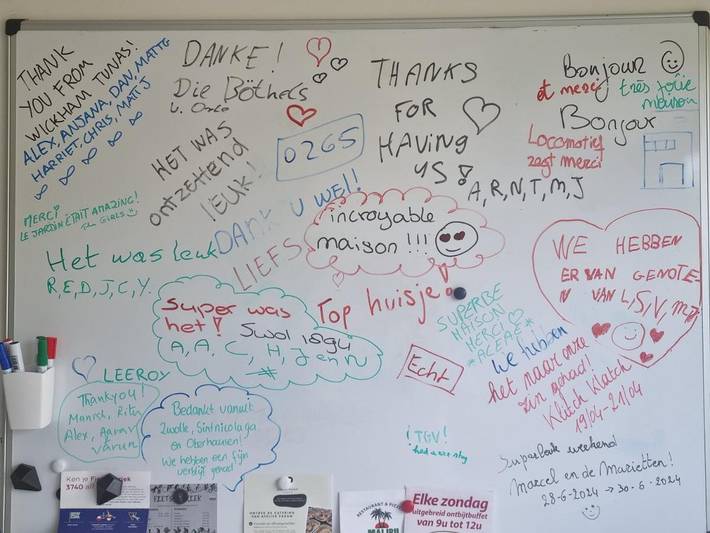 THANK
YOU FROM
WICKHAM TUNAS!
ALEX, ANJANA, DAN, MATT G
HARRIET, CHRIS, MATT J
DANKE!
Die Böthels
HET WAS
ONTZETTEND
LEUK!
DANK U WEL!
LIEFS
0265
THANKS
FOR
HAVING
US!
A, R, N, T, M, J
Bonjour
et merci
très jolie
maison
Bonjour
Locomotief
zegt merci
MERCI
LE JARDIN ÉTAIT AMAZING!
The GIRLS
Het was leuk
R, E, D, J, C, Y.
incroyable
maison !!!
Top huisje
WE HEBBEN
ER VAN GENOTE-
N VAN L, S, N, M, T
Super was
het!
A, A, C, H, J en N
SUPERBE
MAISON
MERCI
*ACEAE*
Echt
We hebben
het naar onze
zin gehad!
Klitch Klatch
19/04-21/04
LEEROY
Thankyou!
Manish, Ritu
Alex, Aarav
Varun
Bedankt vanuit
Zwolle, Sintnicolaga
en Oberhausen!
We hebben een fijn
verblijf gehad
! TGV!
Superleuk weekend
Marcel en de Marietten!
28-6-2024 → 30-6-2024
Ken je
3740
RESTAURANT & PIZZ
MALIBU
Elke zondag
uitgebreid ontbijtbuffet
van 9u tot 12u